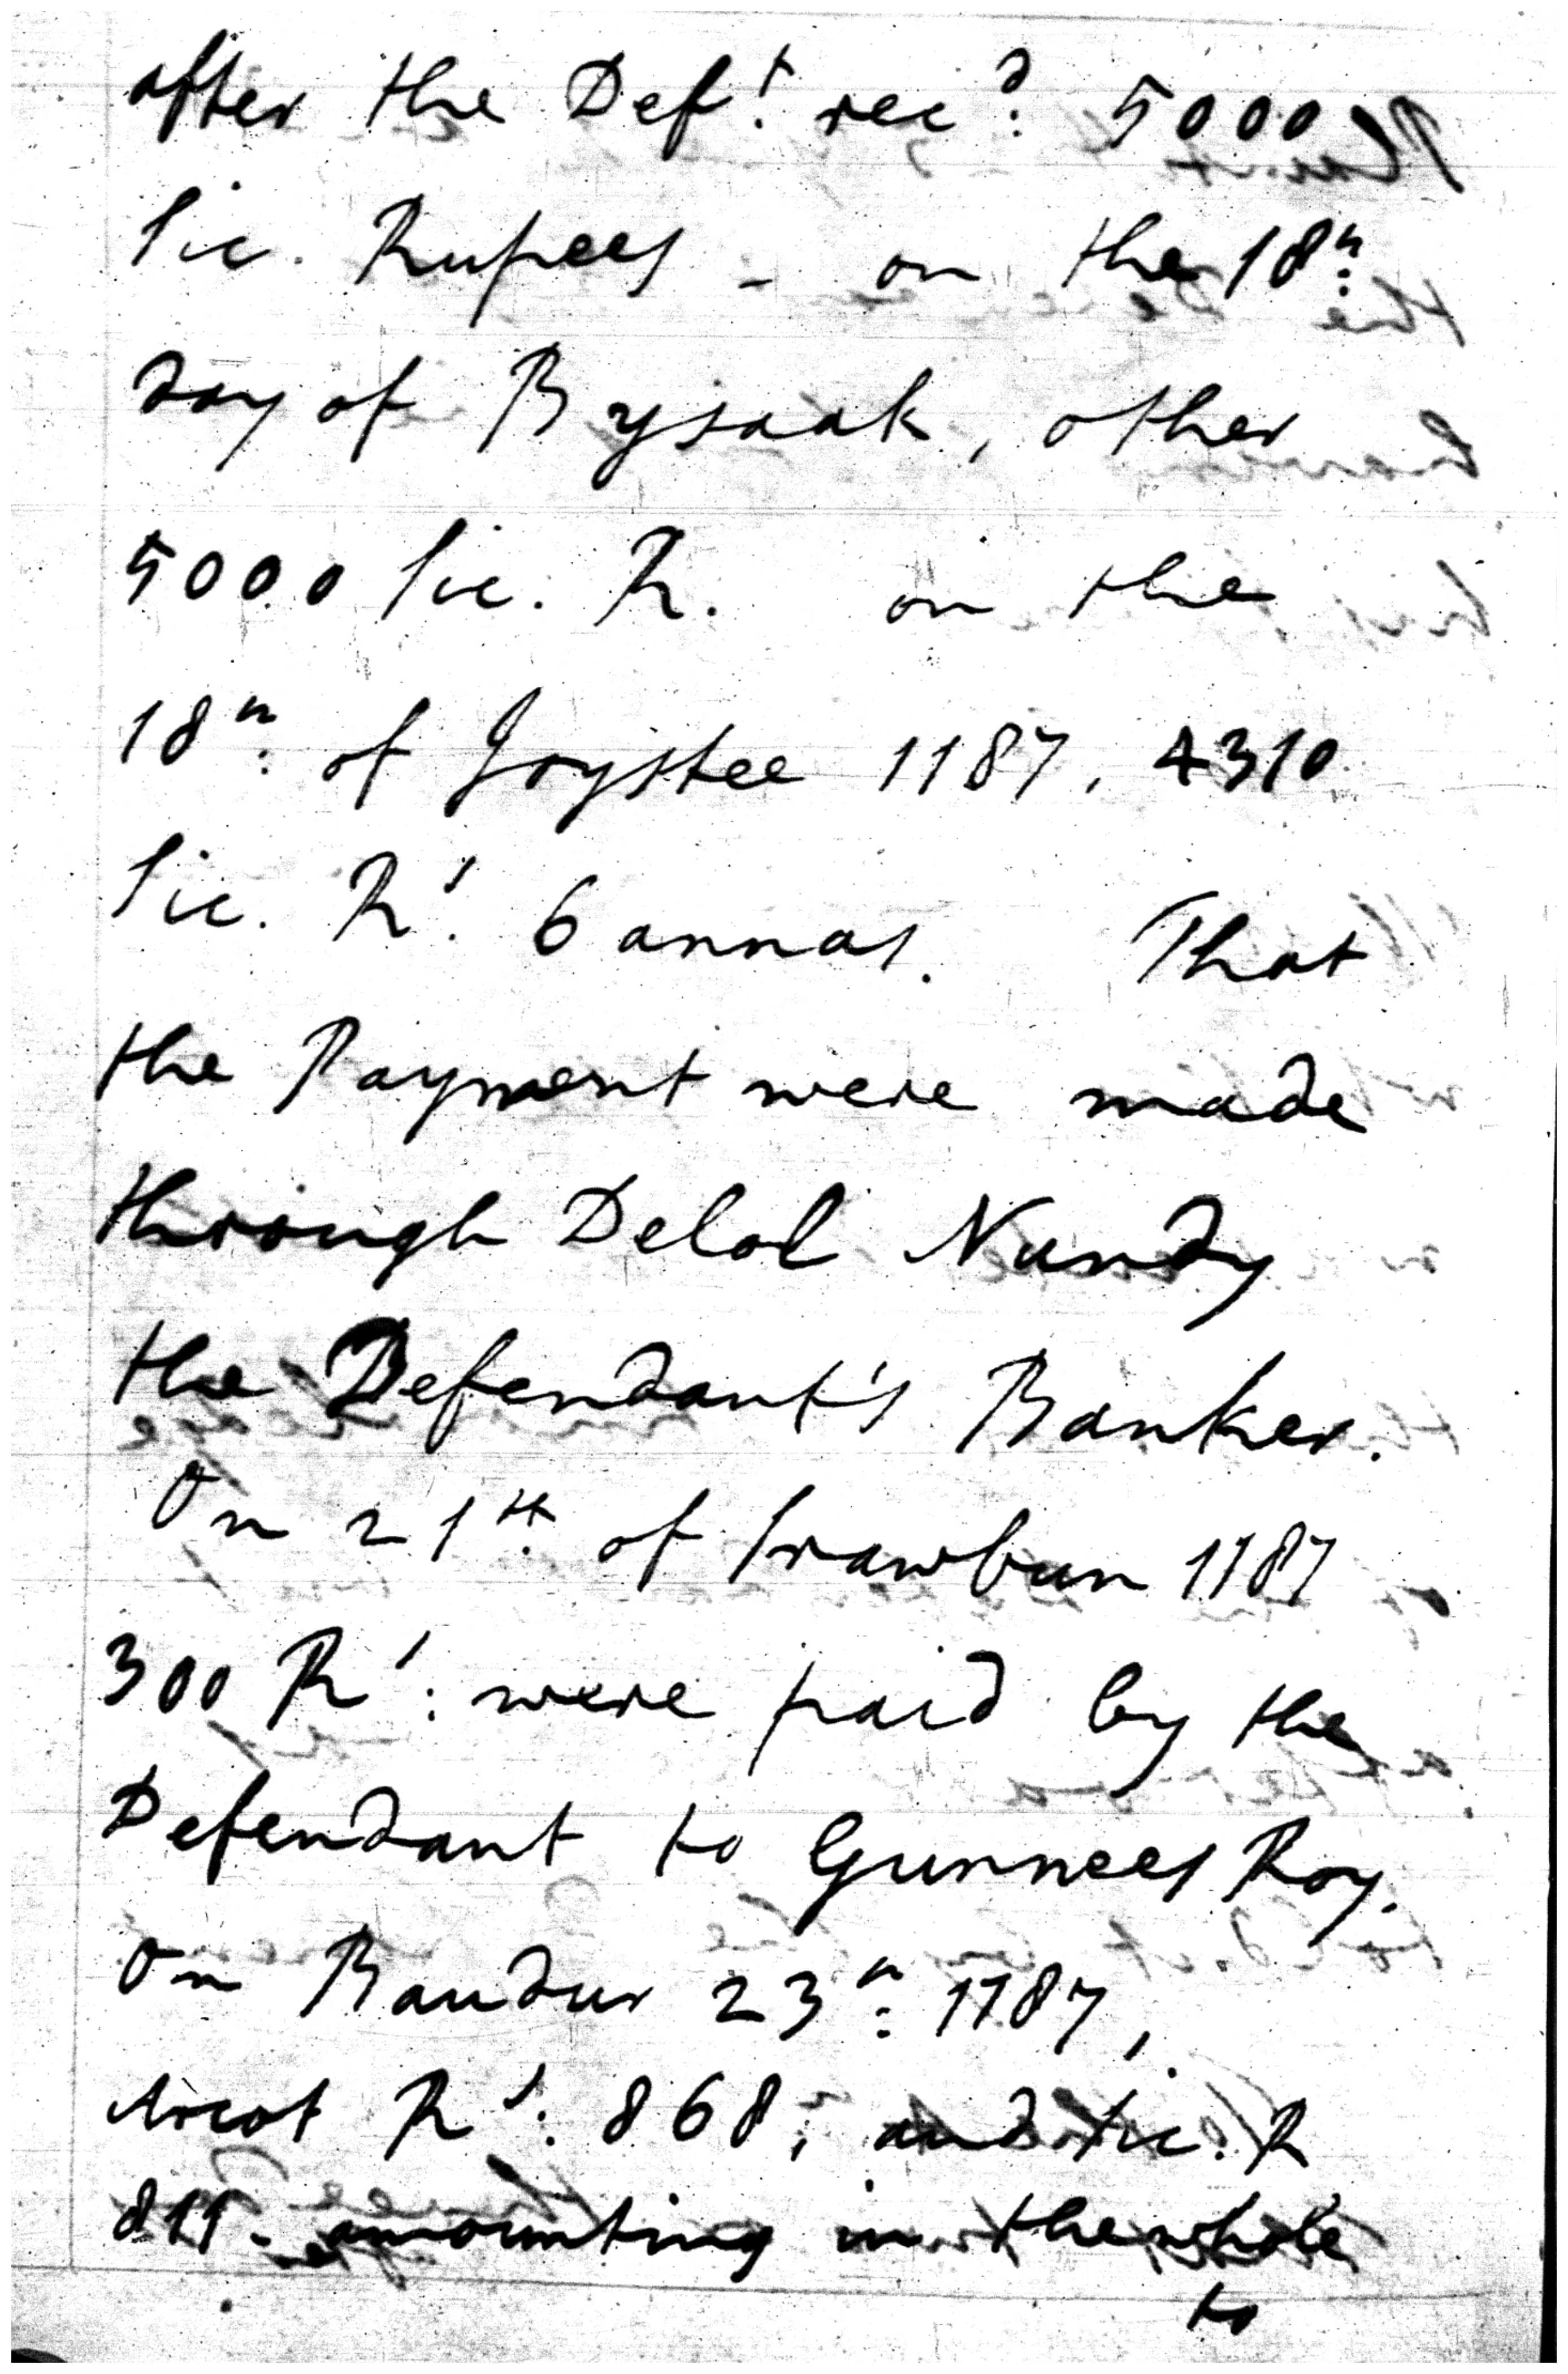 after the Def.t rec.d 5000
Sic. Rupees - on the 18.th
day of Bysaak, other
5000 Sic. R. on the
18.th of Joystee 1187, 4310
Sic. R.s 6 annas. That
the Payment were made
through Delol Nundy
the Defendant's Banker.
On 21.st of Srawbun 1187
300 R.s were paid by the
Defendant to Gunnees Roy.
On Baudur 23.th 1187,
Arcot R.s 868, and Sic. R
811. amounting in the whole
to